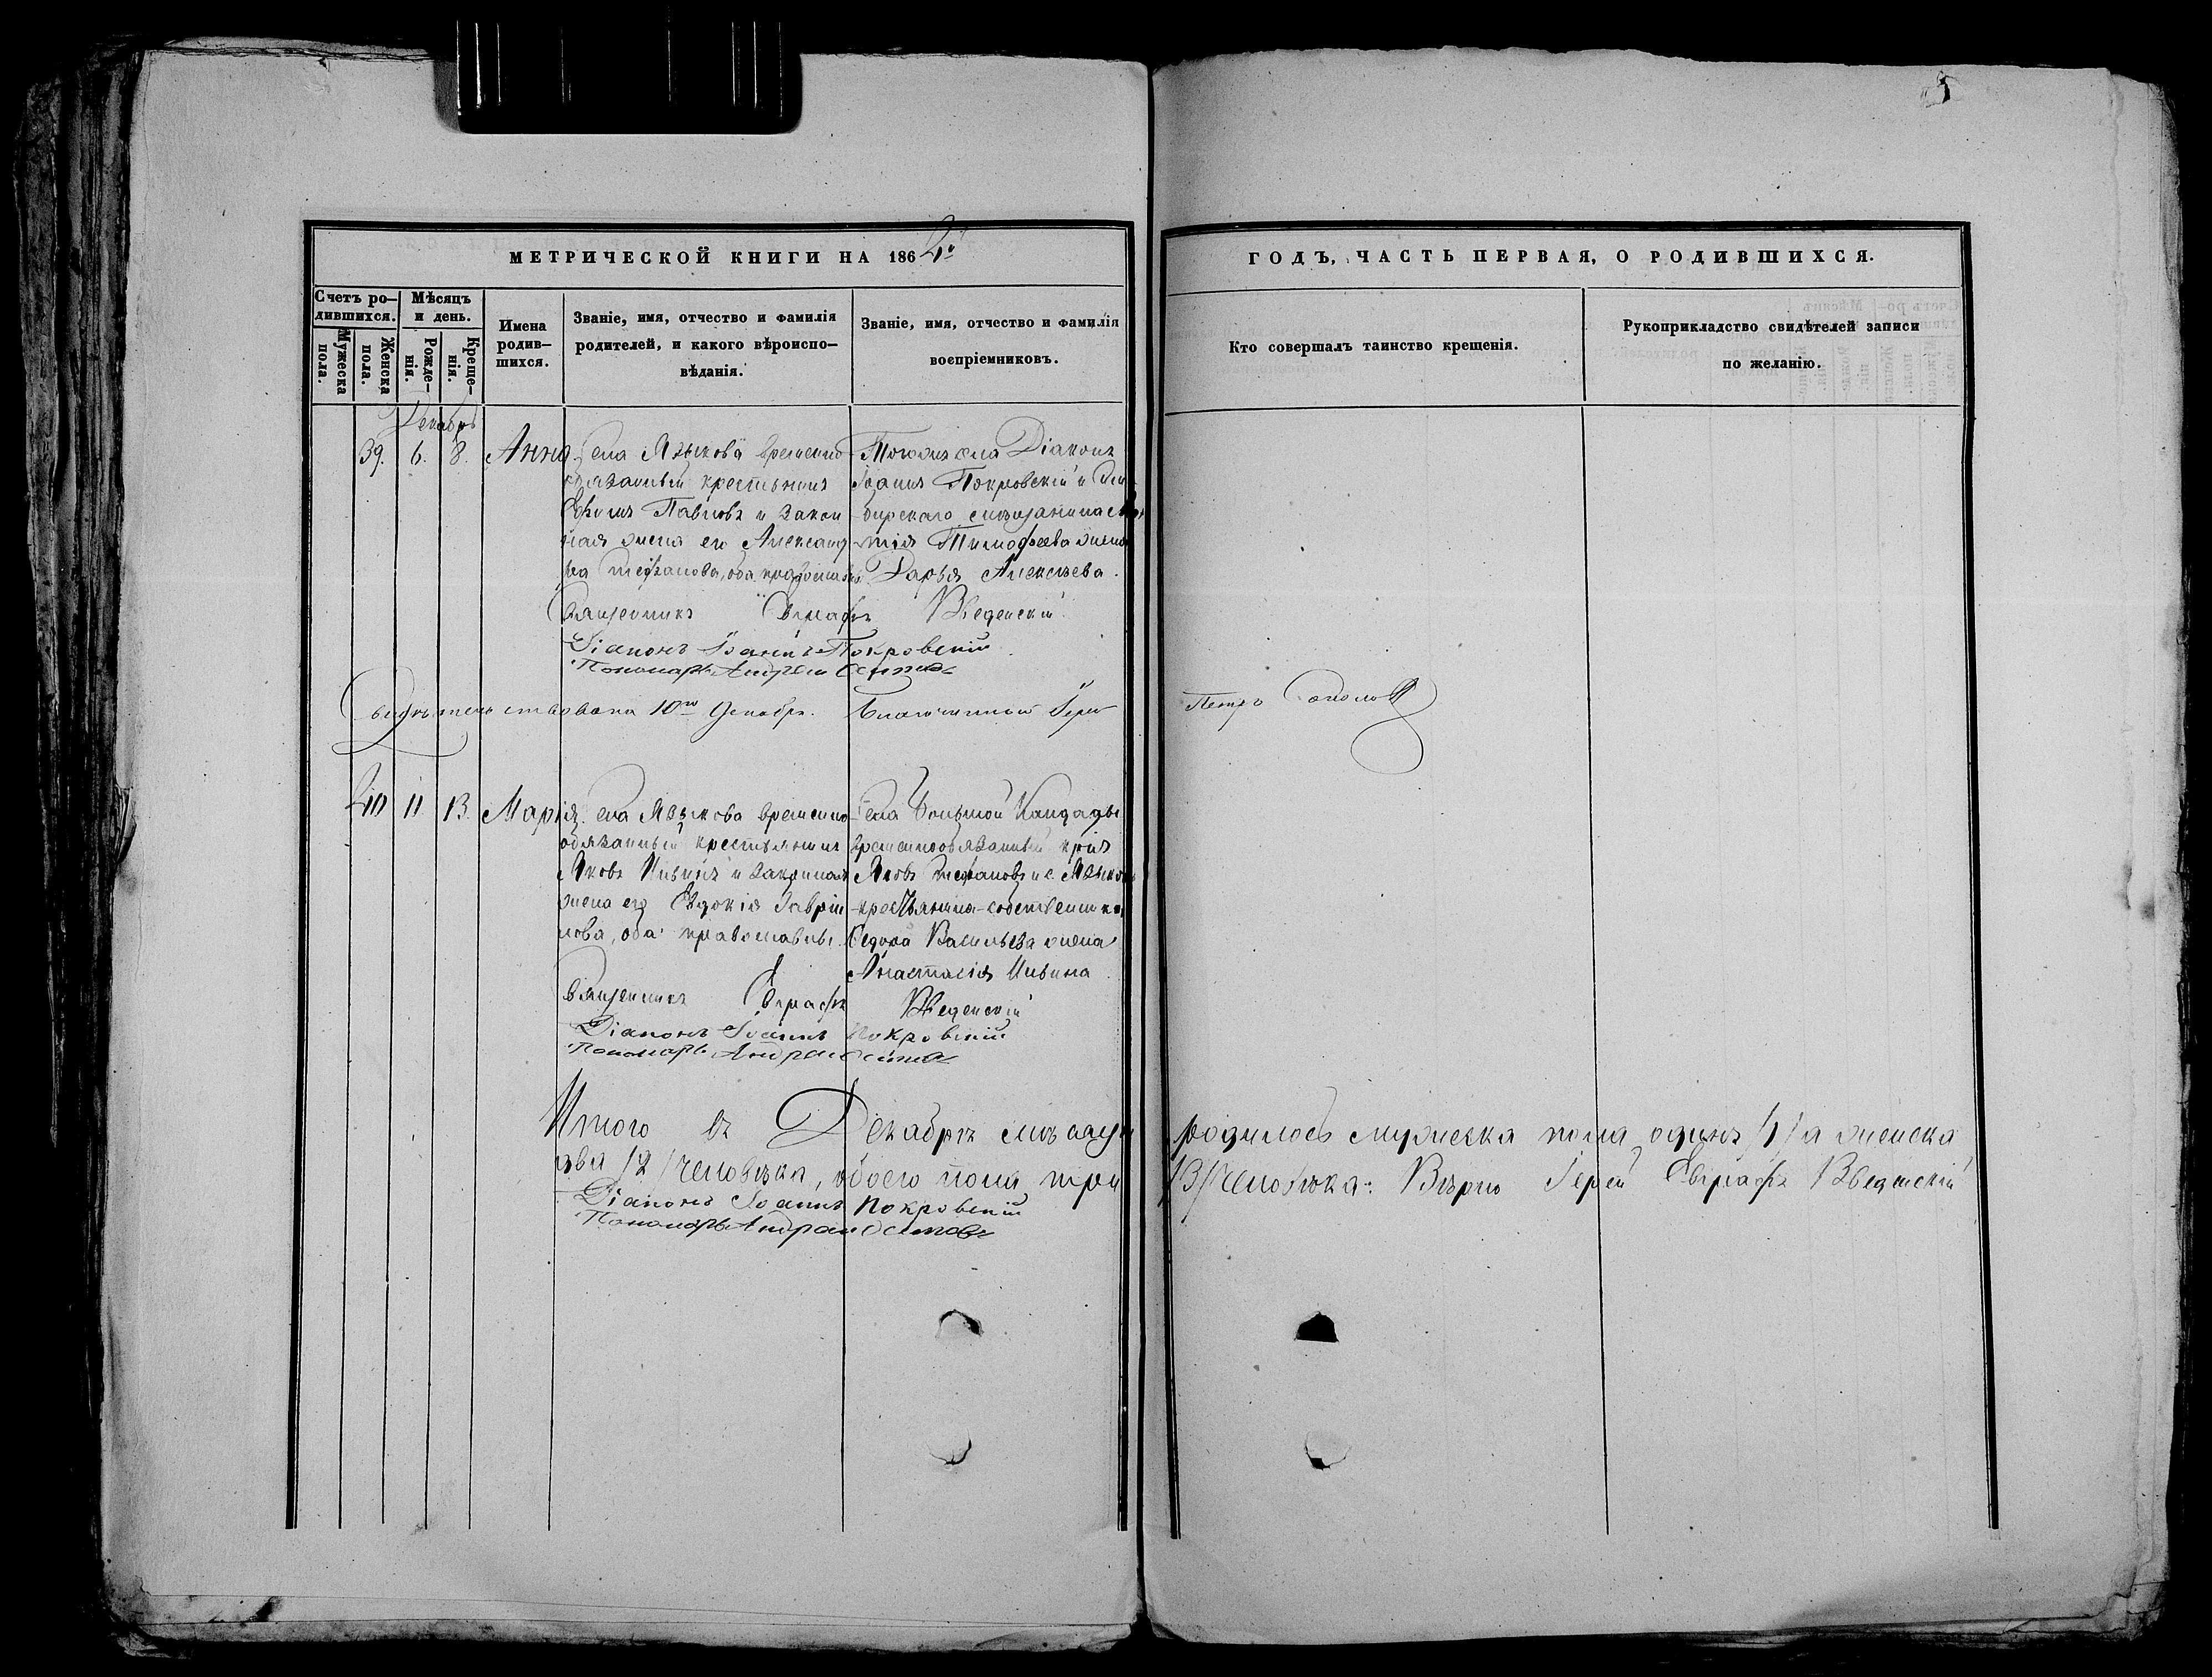 МЕТРИЧЕСКОЙ КНИГИ НА 1862й
ГОДЪ, ЧАСТЬ ПЕРВАЯ, О РОДИВШИХСЯ.
Счетъ ро-
дившихся.
Мужеска пола.
Женска пола.
Мѣсяцъ
и день.
Рожде-
нія.
Креще-
нія.
Имена
родив-
шихся.
Званіе, имя, отчество и фамилія
родителей, и какого вѣроиспо-
вѣданія.
Званіе, имя, отчество и фамилія
воспріемниковъ.
Кто совершалъ таинство крещенія.
Рукоприкладство свидѣтелей записи
по желанію.
Декабрь
39. 6. 8. Анна
Села Языкова временно
обязанный крестьянинъ
Павловъ и закон
ная жена его Александ
ра Стефанова, оба православн.
Тогожъ села Діаконъ
Іоаннъ Покровскій и Сим
бирскаго мѣщанина
Тимофеева жена
Дарья Алексѣева.
Священникъ Евграфъ Введенскій
Діаконъ Іоаннъ Покровскій
Пономарь Андрей Осиповъ
Свидѣтельствована 10го Декабря. Благочинный Іерей
Петръ Соколовъ
40 11 13. Марія.
Села Языкова временно
обязанный крестьянинъ
Яковъ Ильинъ и законная
жена его Евдокія Гаврiи
лова, оба православны.
Села Большой Кандады
временнообязанный кр-нъ
Яковъ Стефановъ и с. Языкова
крестьянина-собственника
Ѳедора Васильева жена
Анастасія Ильина
Священникъ Евграфъ Введенскій
Діаконъ Іоаннъ Покровскій
Пономарь Андрей Осиповъ
Итого въ Декабрѣ мѣсяцѣ
родилось мужеска пола одинъ /1/ а женска
два /2/ человѣка, обоего пола три
/3/ человѣка: Вѣрно Іерей Евграфъ Введенскій
Діаконъ Іоаннъ Покровскій
Пономарь Андрей Осиповъ